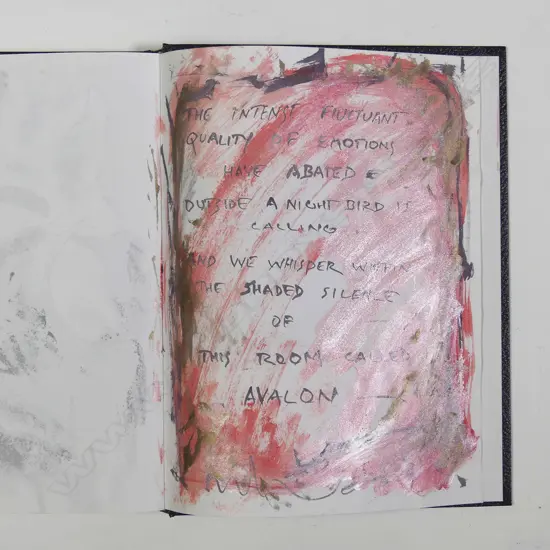 THE INTENSE FLUCTUANT
QUALITY OF EMOTIONS
HAVE ABATED &
OUTSIDE A NIGHT BIRD IS
CALLING.
AND WE WHISPER WITHIN
THE SHADED SILENCE
OF —
THIS ROOM CALLED
AVALON —